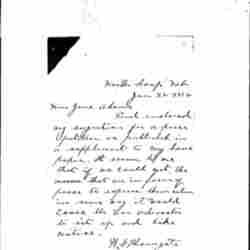 North Loup, Neb
Jan 22
Miss Jane Addams
Find enclosed
my suggestion for a peace
petition as published in
a supplement to my home
paper. It seems to me
that if we could get the
women that are in favor of
peace to express themselves
in some way it would
cause the
to sit up and take
notice.